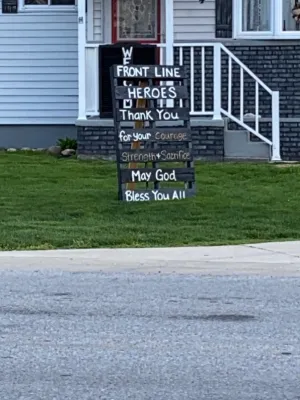 WE
FRONT LINE
HEROES
Thank You
for your Courage
Strength & Sacrifice
May God
Bless You All